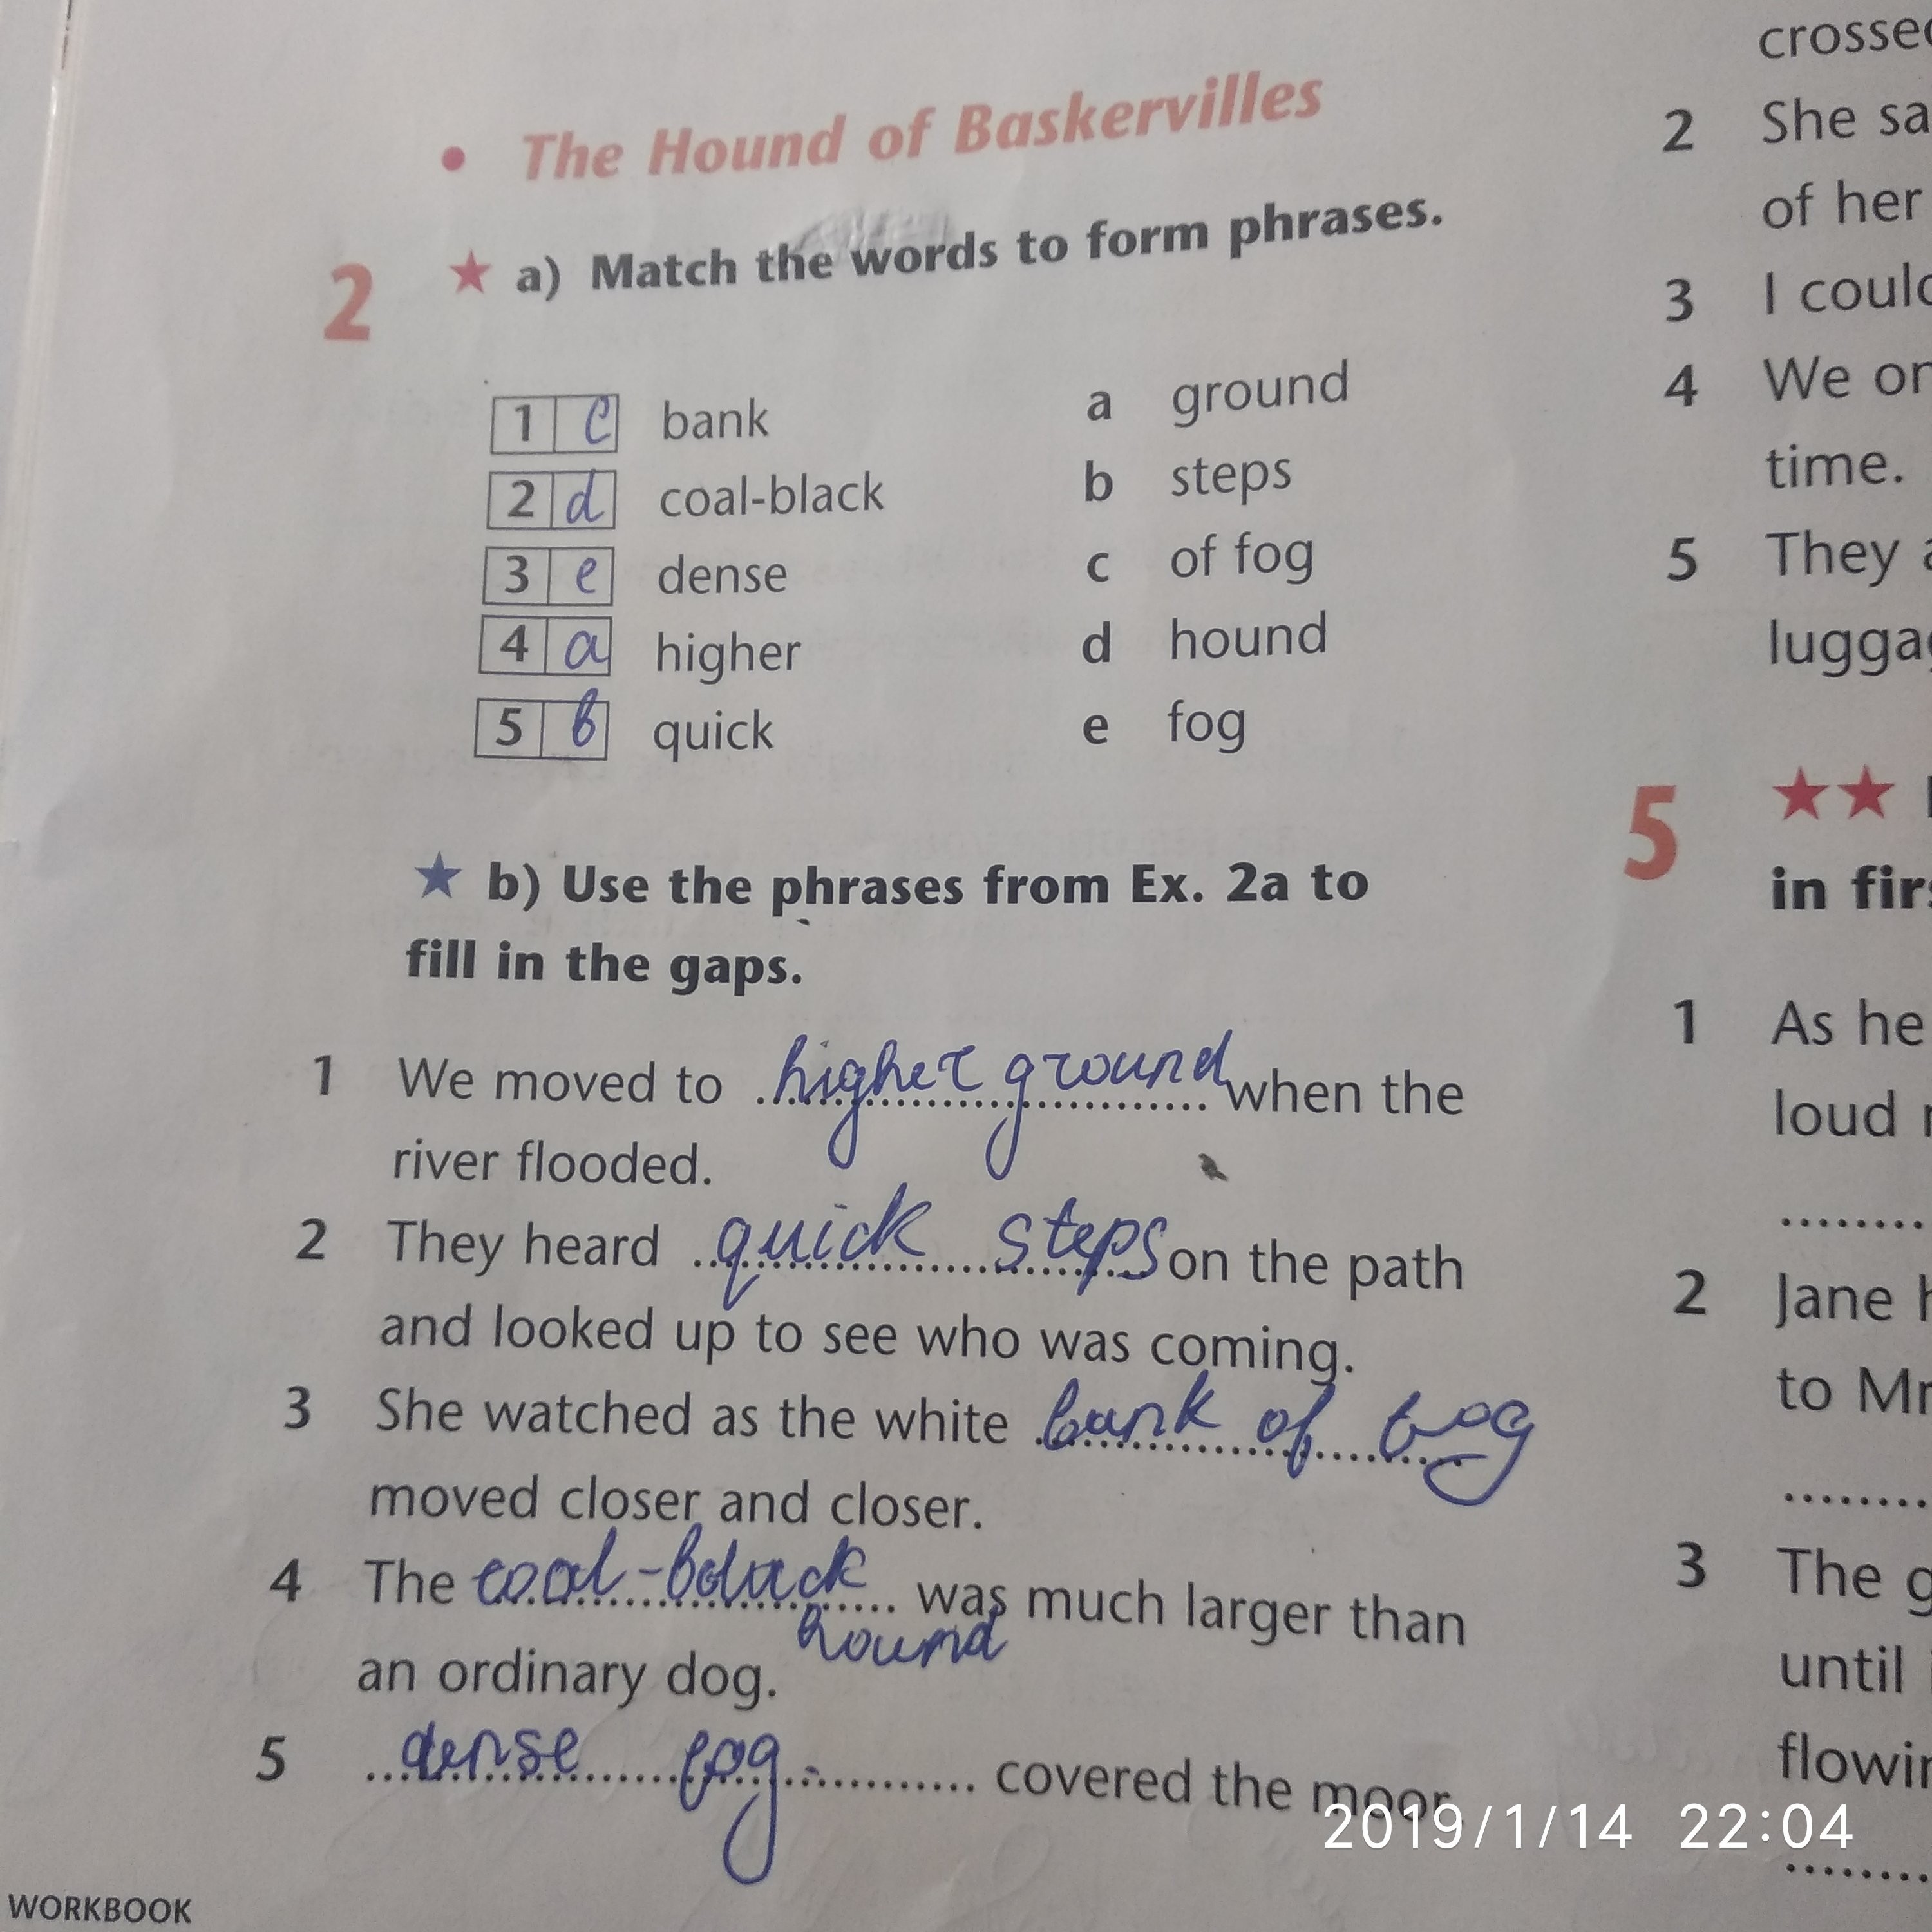 • The Hound of Baskervilles
2 ★ a) Match the words to form phrases.
1 c bank a ground
2 d coal-black b steps
3 e dense c of fog
4 a higher d hound
5 b quick e fog
★ b) Use the phrases from Ex. 2a to
fill in the gaps.
1 We moved to higher ground when the
river flooded.
2 They heard quick steps on the path
and looked up to see who was coming.
3 She watched as the white bank of fog
moved closer and closer.
4 The coal-black was much larger than
hound
an ordinary dog.
5 dense fog covered the moor.
WORKBOOK
crossed
2 She sa
of her
3 I could
4 We on
time.
5 They a
luggag
5 ★★
in firs
1 As he
loud
2 Jane h
to Mr
3 The g
until
flowin
2019/1/14 22:04